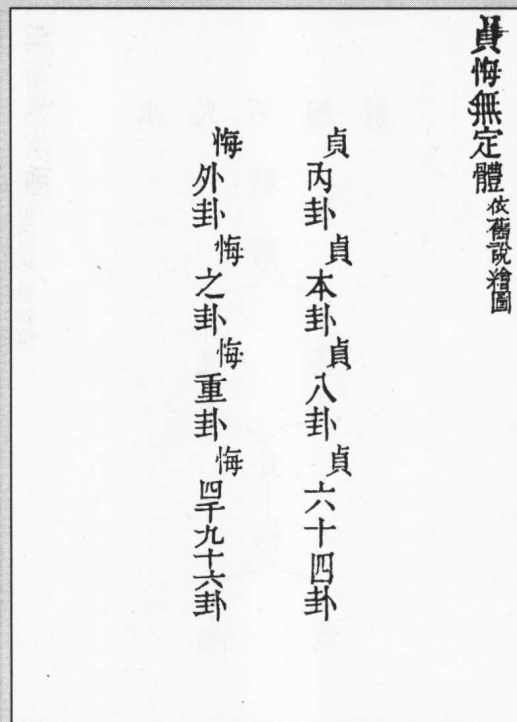 貞悔無定體依舊說繪圖
貞內卦貞本卦貞八卦貞六十四卦
悔外卦悔之卦悔重卦悔四千九十六卦